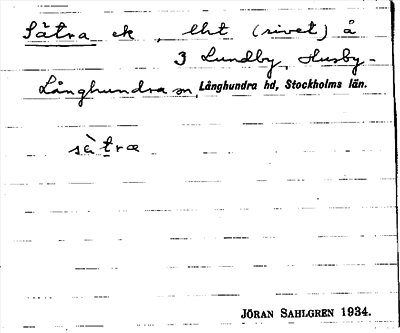 Sätra ek, lht (rivet) å
3 Lundby, Husby-
Långhundra sn, Långhundra hd, Stockholms län.
sàtra
JÖRAN SAHLGREN 1934.